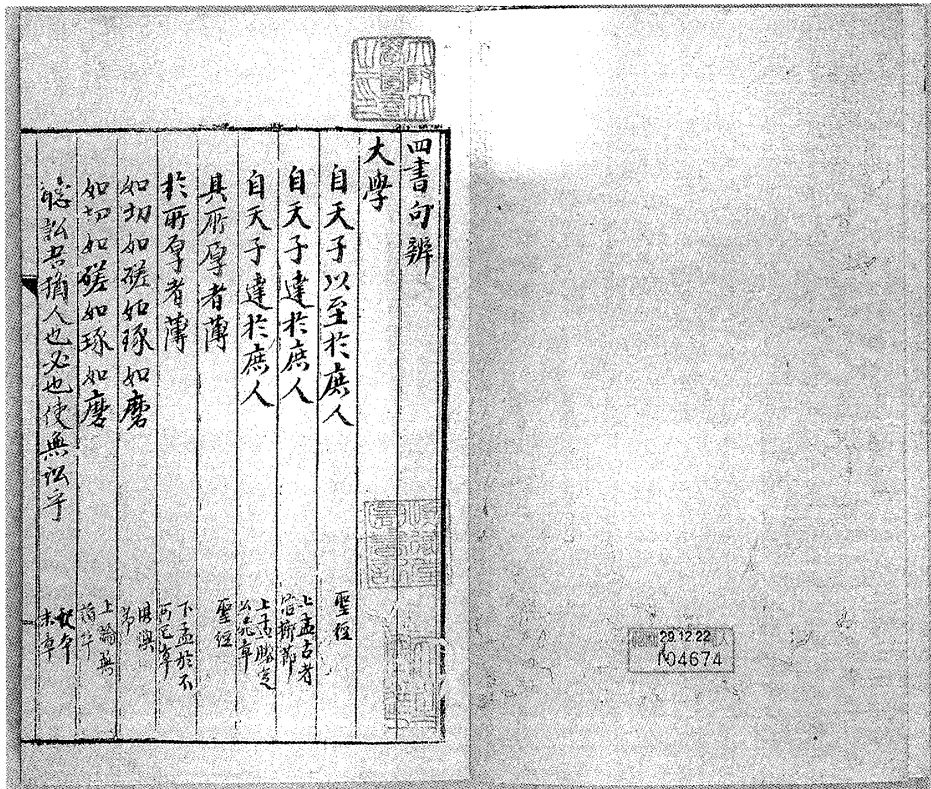 四書句辨
大學
自天子以至於庶人 聖經
自天子達於庶人 上孟古者棺槨節
自天子達於庶人 上孟滕定公薨章
其所厚者薄 聖經
於所厚者薄 下孟於不可已章
如切如磋如琢如磨 淇澳節
如切如磋如琢如磨 上論無諂章
聽訟吾猶人也必也使無訟乎 末章
29.12.22
104674